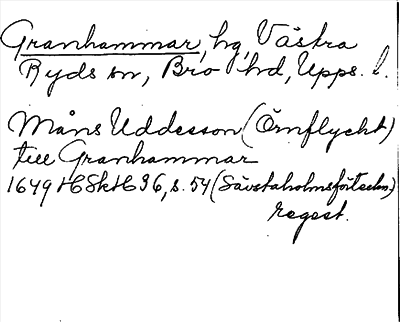 Granhammar, hg, Västra
Ryds sn, Bro hd, Upps. l.
Måns Uddesson (Örnflycht)
till Granhammar
1649 HSkH 36, s. 54 (Säfstaholmsförteckn.)
regest.